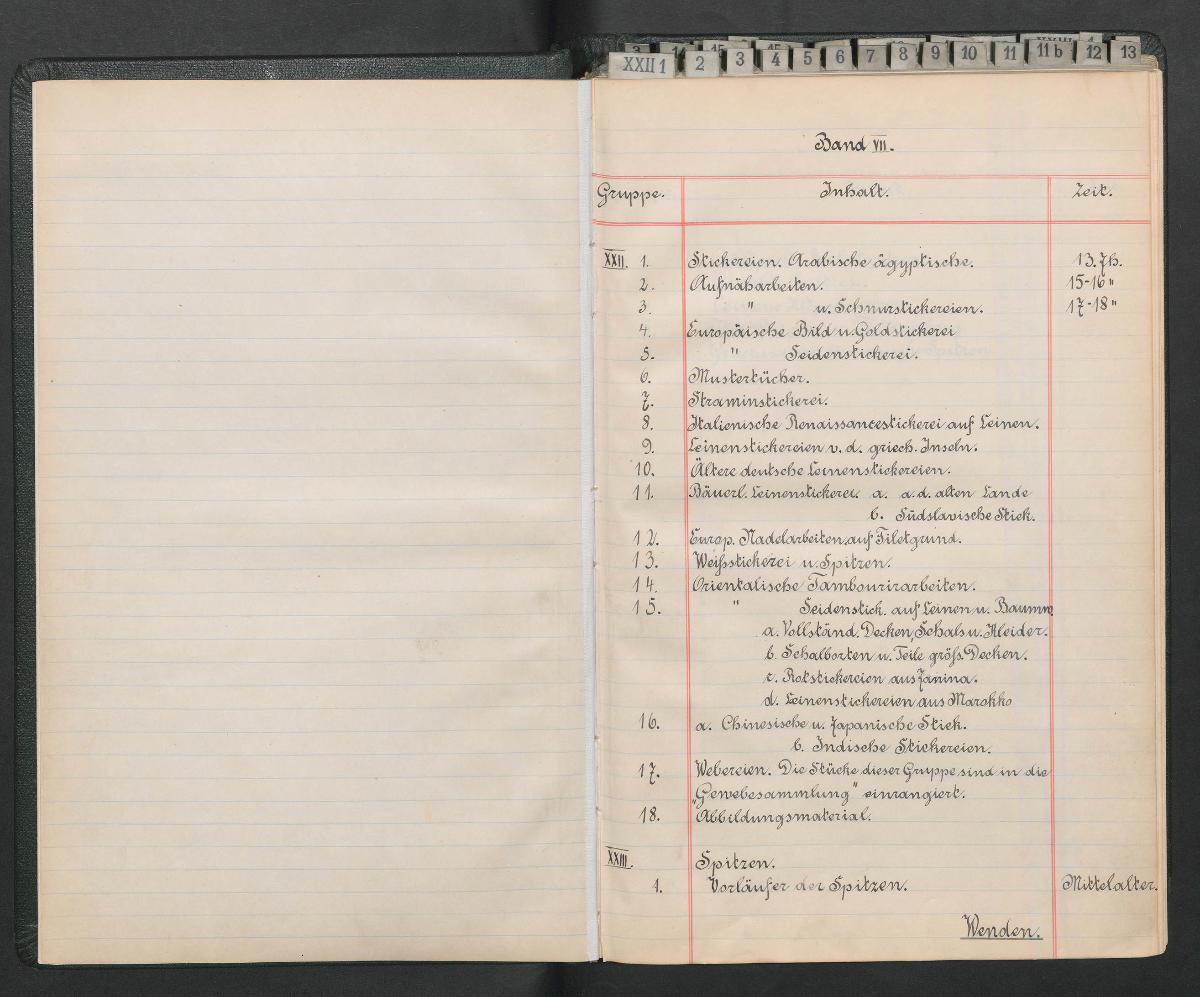 XXII 1 2 3 4 5 6 7 8 9 10 11 11 b 12 13
Band VII.
Gruppe. Inhalt. Zeit.
XXII. 1. Stickereien. Arabische ägyptische. 13. Jh.
2. Aufnäharbeiten. 15-16 "
3. " u. Schnurstickereien. 17-18 "
4. Europäische Bild u. Goldstickerei
5. " Seidenstickerei.
6. Mustertücher.
7. Straminstickerei.
8. Italienische Renaissancestickerei auf Leinen.
9. Leinenstickereien v. d. griech. Inseln.
10. Ältere deutsche Leinenstickereien.
11. Bäuerl. Leinenstickerei. a. a. d. alten Lande
b. Südslavische Stick.
12. Europ. Nadelarbeiten, auf Filetgrund.
13. Weißstickerei u. Spitzen.
14. Orientalische Tambourirarbeiten.
15. " Seidenstick. auf Leinen u. Baumw.
a. Vollständ. Decken, Schals u. Kleider.
b. Schalborten u. Teile größ. Decken.
c. Rotstickereien aus Janina.
d. Leinenstickereien aus Marokko
16. a. Chinesische u. Japanische Stick.
b. Indische Stickereien.
17. Webereien. Die Stücke dieser Gruppe sind in die
„Gewebesammlung" einrangiert.
18. Abbildungsmaterial.
XXIII. Spitzen.
1. Vorläufer der Spitzen. Mittelalter.
Wenden.